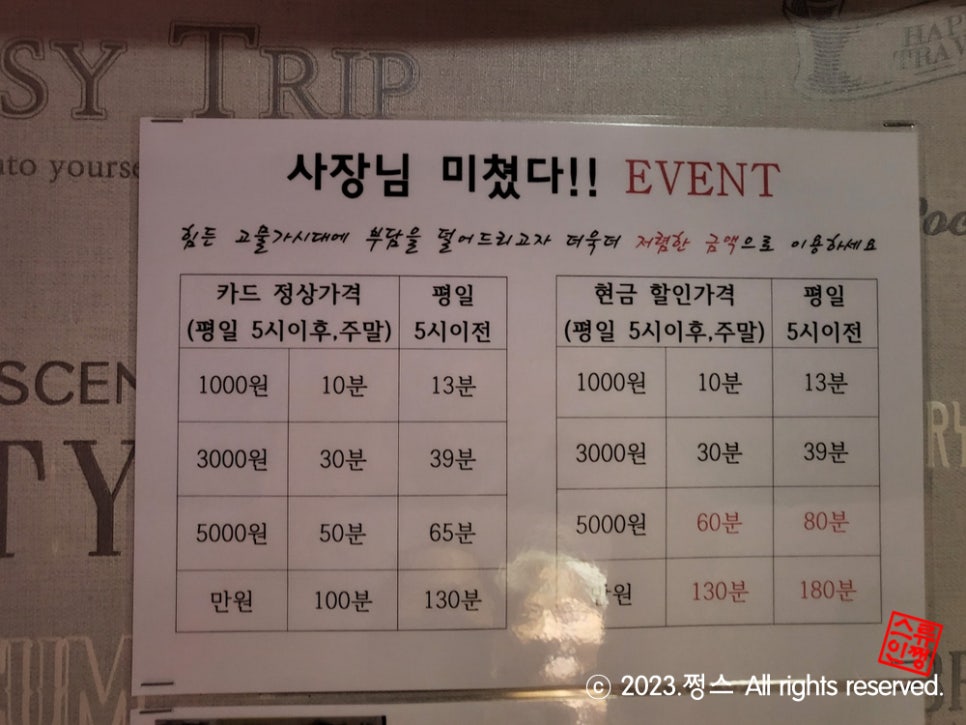 SY TRIP
HAP
TRAV
nto yourse
사장님 미쳤다!! EVENT
힘든 고물가시대에 부담을 덜어드리고자 더욱더 저렴한 금액으로 이용하세요
카드 정상가격 평일
(평일 5시이후,주말) 5시이전
1000원 10분 13분
3000원 30분 39분
5000원 50분 65분
만원 100분 130분
현금 할인가격 평일
(평일 5시이후,주말) 5시이전
1000원 10분 13분
3000원 30분 39분
5000원 60분 80분
만원 130분 180분
SCEN
TY
RY
스류
인쩡
© 2023.쩡스 All rights reserved.